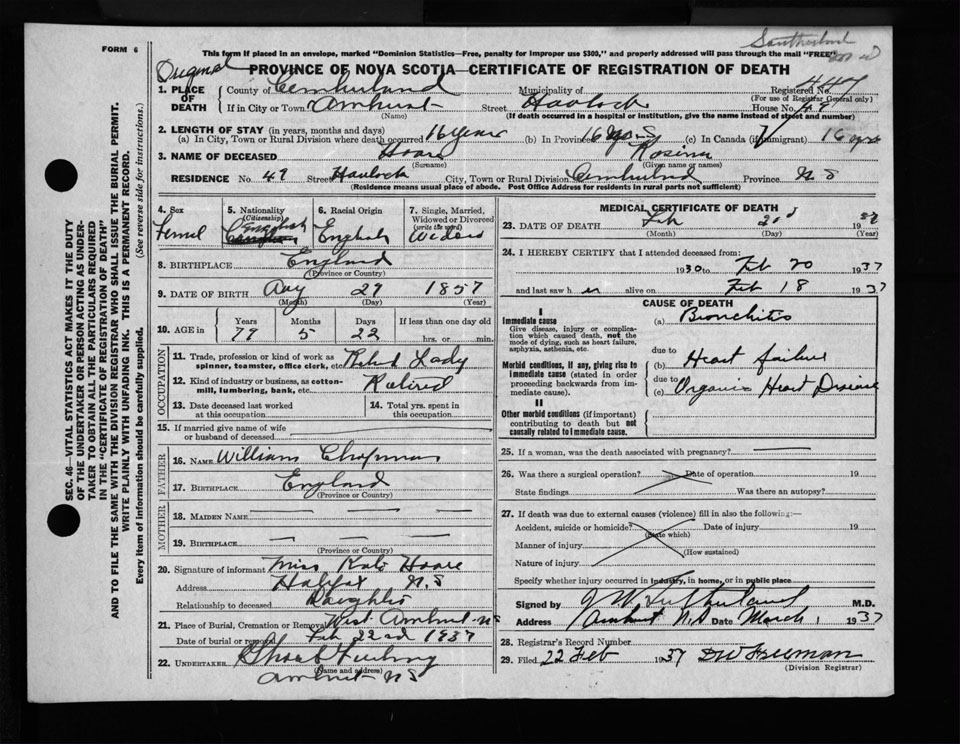 FORM 6
This form if placed in an envelope, marked "Dominion Statistics—Free, penalty for improper use $300," and properly addressed will pass through the mail "FREE"
Original
PROVINCE OF NOVA SCOTIA—CERTIFICATE OF REGISTRATION OF DEATH
1. PLACE OF DEATH
County of Cumberland Municipality of Registered No.
(For use of Registrar General only)
If in City or Town Amherst Street Havlock House No.
(Name) (If death occurred in a hospital or institution, give the name instead of street and number)
2. LENGTH OF STAY (in years, months and days)
(a) In City, Town or Rural Division where death occurred 16 years (b) In Province 16 yrs (c) In Canada (if immigrant) 16 yrs
3. NAME OF DECEASED Hoare Rosina
(Surname) (Given name or names)
RESIDENCE No. 47 Street Havlock City, Town or Rural Division Cumberland Province N S
(Residence means usual place of abode. Post Office Address for residents in rural parts not sufficient)
4. Sex
5. Nationality (Citizenship)
English
6. Racial Origin
English
7. Single, Married, Widowed or Divorced (write the word)
8. BIRTHPLACE England
(Province or Country)
9. DATE OF BIRTH 29 1857
(Month) (Day) (Year)
10. AGE in Years Months Days If less than one day old
79 5 22 hrs. or min.
OCCUPATION
11. Trade, profession or kind of work as spinner, teamster, office clerk, etc. Lady
12. Kind of industry or business, as cotton-mill, lumbering, bank, etc. Retired
13. Date deceased last worked at this occupation
14. Total yrs. spent in this occupation
15. If married give name of wife or husband of deceased
FATHER
16. NAME William Chapman
17. BIRTHPLACE England
(Province or Country)
MOTHER
18. MAIDEN NAME
19. BIRTHPLACE
(Province or Country)
20. Signature of informant Miss Kate Hoare
Address Halifax N. S
Relationship to deceased Daughter
21. Place of Burial, Cremation or Removal West Amherst NS
Date of burial or removal Feb 22nd 1937
22. UNDERTAKER
(Name and address)
Amherst N S
MEDICAL CERTIFICATE OF DEATH
23. DATE OF DEATH Feb 19
(Month) (Day) (Year)
24. I HEREBY CERTIFY that I attended deceased from:
1930 to Feb 20 1937
and last saw h er alive on Feb 18 1937
CAUSE OF DEATH
I
Immediate cause
Give disease, injury or complication which caused death, not the mode of dying, such as heart failure, asphyxia, asthenia, etc.
(a) Bronchitis
Morbid conditions, if any, giving rise to immediate cause (stated in order proceeding backwards from immediate cause).
due to
(b) Heart failure
due to
(c) Organic Heart Disease
II
Other morbid conditions (if important) contributing to death but not causally related to immediate cause.
25. If a woman, was the death associated with pregnancy?
26. Was there a surgical operation? Date of operation 19
State findings Was there an autopsy?
27. If death was due to external causes (violence) fill in also the following:—
Accident, suicide or homicide? Date of injury 19
(State which)
Manner of injury
(How sustained)
Nature of injury
Specify whether injury occurred in industry, in home, or in public place
Signed by J W Sutherland M.D.
Address Amherst N.S Date March 1 1937
28. Registrar's Record Number
29. Filed 22 Feb 1937
(Division Registrar)
SEC. 46—VITAL STATISTICS ACT MAKES IT THE DUTY
OF THE UNDERTAKER OR PERSON ACTING AS UNDER-
TAKER TO OBTAIN ALL THE PARTICULARS REQUIRED
IN THE "CERTIFICATE OF REGISTRATION OF DEATH"
AND TO FILE THE SAME WITH THE DIVISION REGISTRAR WHO SHALL ISSUE THE BURIAL PERMIT.
WRITE PLAINLY WITH UNFADING INK. THIS IS A PERMANENT RECORD.
Every item of information should be carefully supplied. (See reverse side for instructions.)